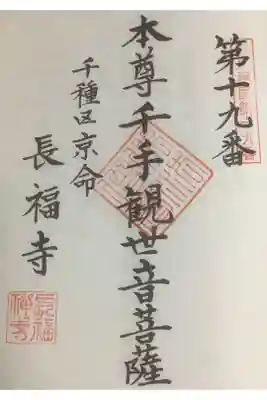 第十九番
本尊千手観世音菩薩
千種区京命
長福寺